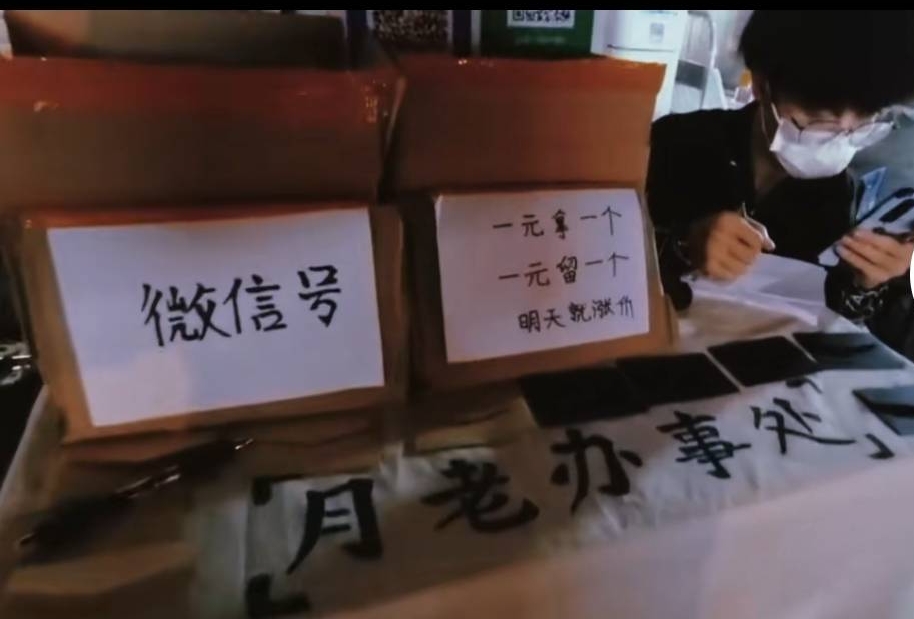 微信号
一元拿一个
一元留一个
明天就涨价
「月老办事处」